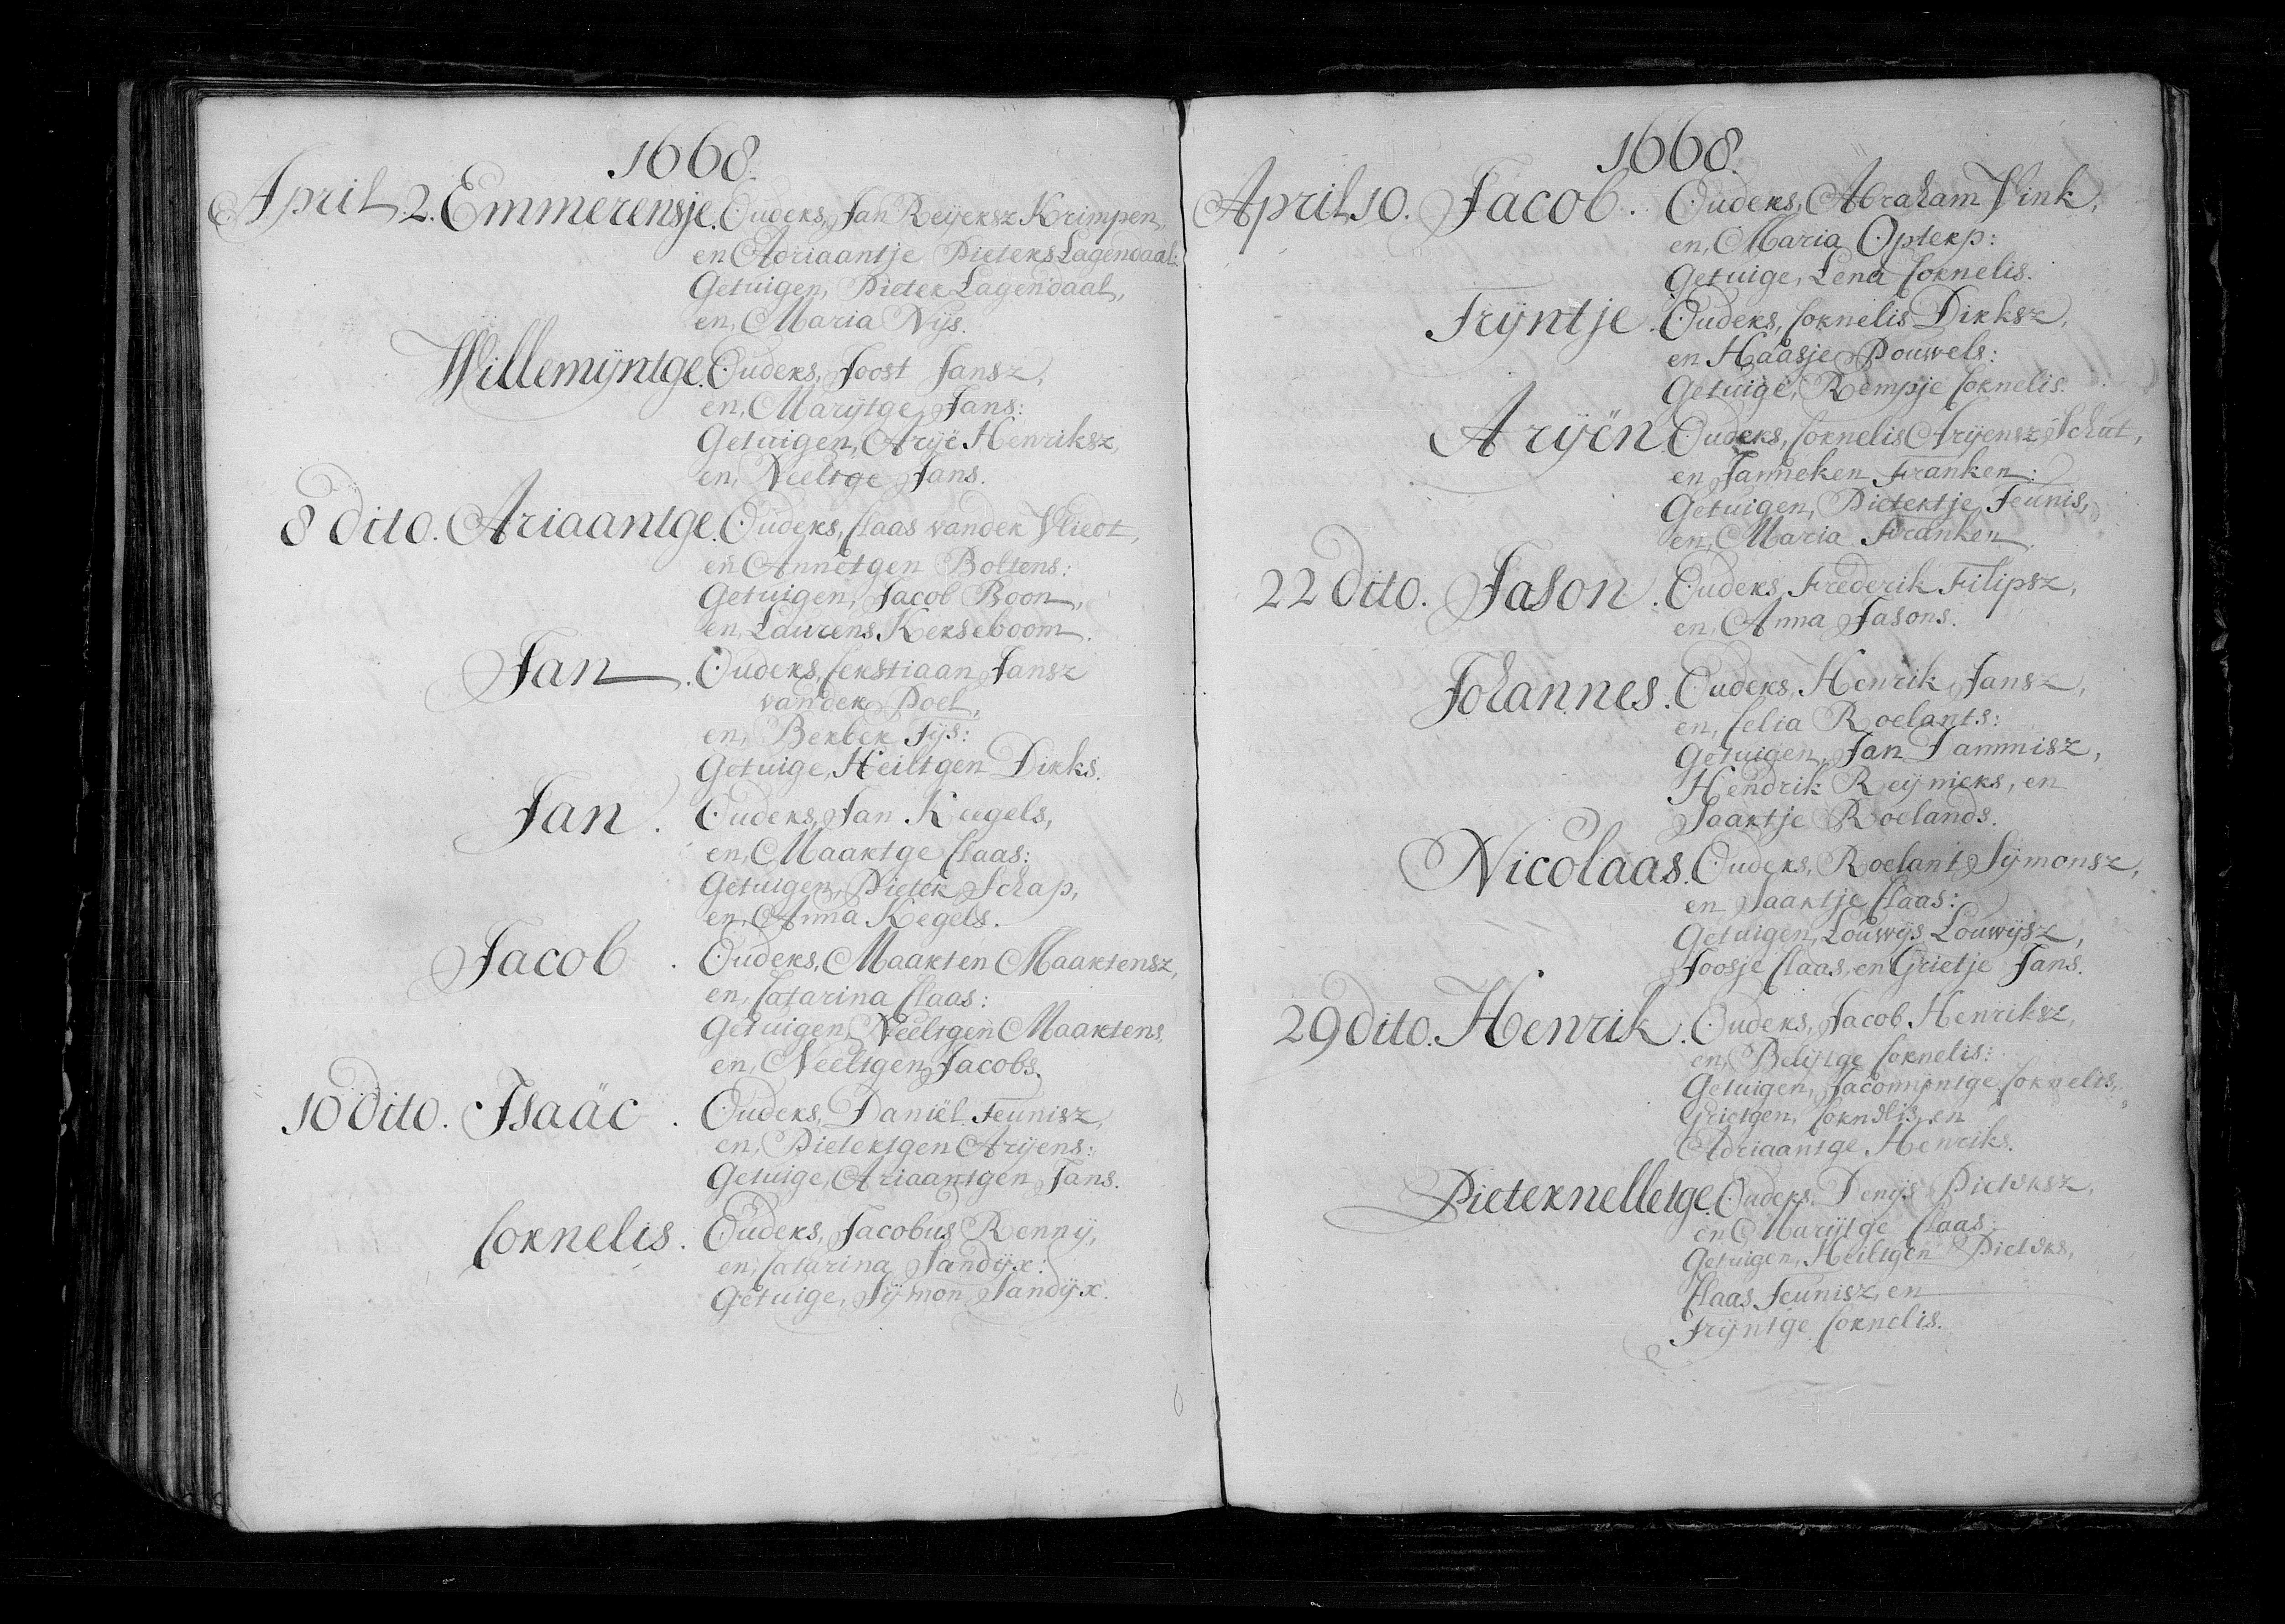 1668.
April 2. Emmerensje. Ouders, Jan Reyersz Krimpen,
en Adriaantje Pieters Lagendaal:
Getuigen, Pieter Lagendaal,
en, Maria Nijs.
Willemijntge. Ouders, Joost Jansz,
en, Marijtge Jans:
Getuigen, Arijë Henriksz,
en, Neeltge Jans.
8 dito. Ariaantge. Ouders, Claas vander Vliedt,
en Annetgen Boltens:
Getuigen, Jacob Boon,
en, Laurens Kerseboom.
Jan. Ouders, Cerstiaan Jansz
vander Poel,
en, Berber Tijs:
Getuige, Heiltgen Dirks.
Jan. Ouders, Jan Keegels,
en, Maartge Claas:
Getuigen, Pieter Schap,
en, Anna Kegels.
Jacob. Ouders, Maarten Maartensz,
en, Catarina Claas:
Getuigen, Neeltgen Maartens
en, Neeltgen Jacobs.
10 dito. Isaäc. Ouders, Daniël Teunisz,
en, Pietertgen Arijens:
Getuige, Ariaantgen Jans.
Cornelis. Ouders, Jacobus Rennij,
en, Catarina Sandijx:
Getuige, Sijmon Sandijx.
1668.
April 10. Jacob. Ouders, Abraham Vink,
en, Maria Opterp:
Getuige, Lena Cornelis.
Trijntje. Ouders, Cornelis Dirksz,
en Haasje Pouwels:
Getuige, Rempje Cornelis.
Arijën. Ouders, Cornelis Arijensz Schut,
en Janneken Franken:
Getuigen, Pietertje Teunis,
en, Maria Franken.
22 dito. Jason. Ouders, Frederik Filipsz,
en, Anna Jasons.
Johannes. Ouders, Henrik Jansz,
en, Celia Roelants:
Getuigen, Jan Dammisz,
Hendrik Reyniers, en
Saartje Roelands.
Nicolaas. Ouders, Roelant Sijmonsz,
en Saartje Claas:
Getuigen, Louwijs Louwijsz,
Joosje Claas, en Grietje Jans.
29 dito. Henrik. Ouders, Jacob Henriksz,
en, Belijtge Cornelis:
Getuigen, Jacomijntge Cornelis,
Grietgen, Cornelis, en
Adriaantge Henriks.
Pieternelletge. Ouders, Denijs Pietersz,
en Marijtge Claas:
Getuigen, Heiltgen Pieters,
Claas Teunisz, en
Trijntge Cornelis.